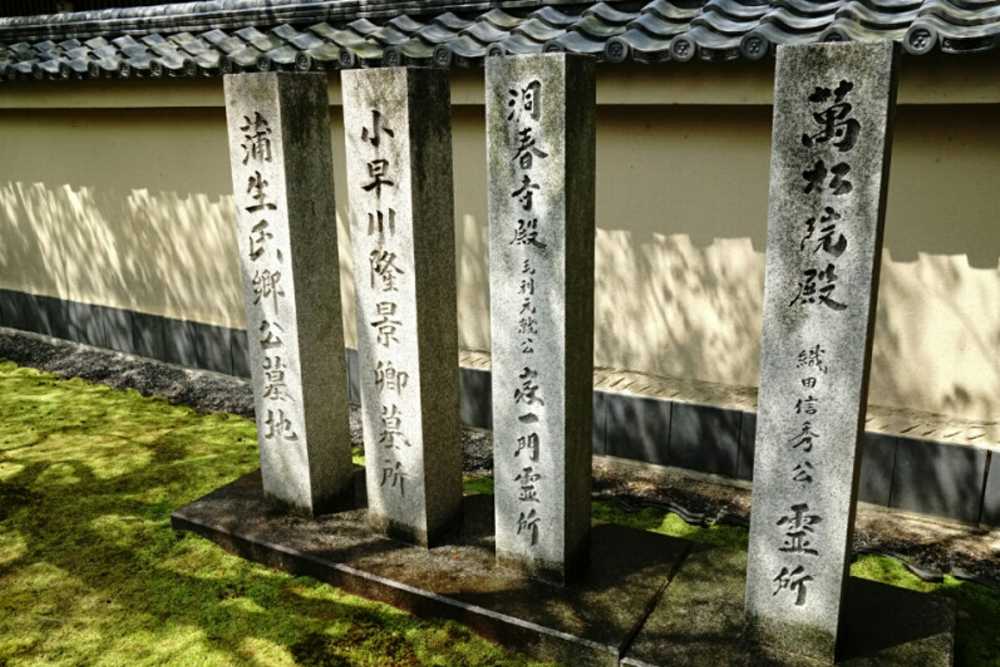 萬松院殿 織田信秀公 霊所
洞春寺殿 毛利元就公 家一門霊所
小早川隆景卿墓所
蒲生氏郷公墓地